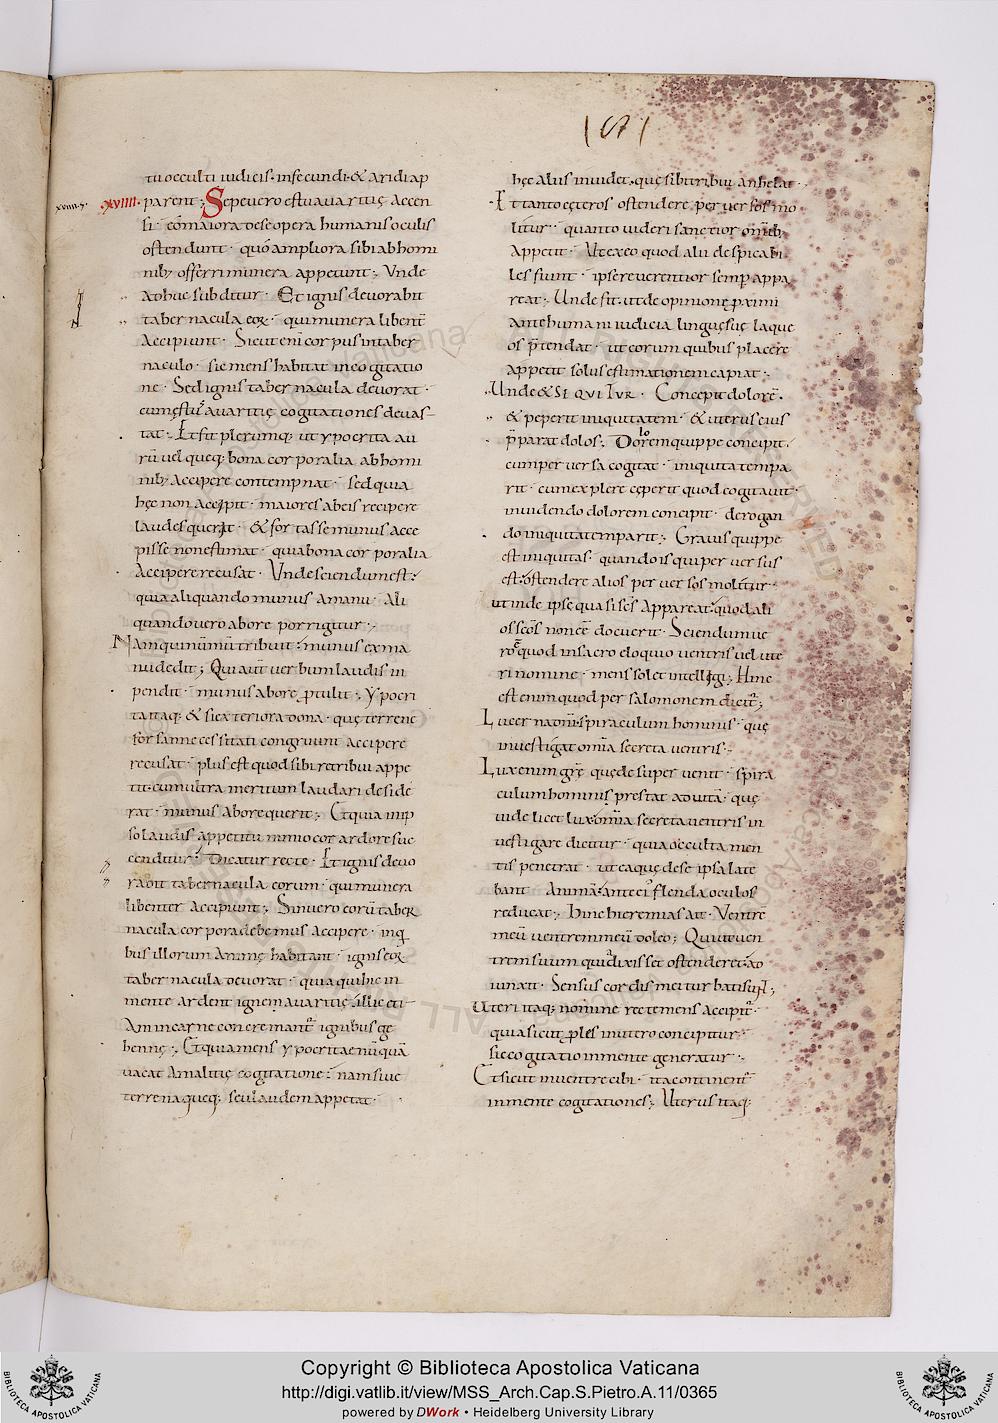 1671
tu occulti iudicis· infecundi· & aridi ap
xviiii·
xviiii· parent; Sepe uero estu auaritiç accen
si· cōmaiora de se opera humanis oculis
ostendunt· quō ampliora sibi ab homi
nib; offerri munera appetunt; Unde
adhuc subditur· Et ignis deuorabit
tabernacula eoꝝ· qui munera libent̄
accipiunt· Sicut eni corpus in taber
naculo· sic mens habitat in cogitatio
ne· Sed ignis tabernacula deuorat·
cum ęstus auaritię cogitationes deuas
tat; Et fit plerumq; ut ypocrita au
rū uel queq; bona corporalia ab homi
nib; accipere contempnat· sed quia
hęc non accipit· maiores ab eis recipere
laudes querit· & fortasse munus acce
pisse non estimat· quia bona corporalia
accipere recusat· Unde sciendum est·
quia aliquando munus a manu· ali
quando uero ab ore porrigitur·
Nam qui nūmū tribuit· munus ex ma
nu dedit; Qui aūt uerbum laudis in
pendit· munus ab ore ꝓtulit; Ypocri
ta itaq; & si exteriora dona· quę terrene
forsan necessitati congruunt accipere
recusat· plus est quod sibi retribui appe
tit· cum ultra meritum laudari deside
rat· munus ab ore querit; Et quia imp
so laudis appetitu nimio cor ardore suc
cenditur· Dicatur recte· Et ignis deuo
rabit tabernacula eorum· qui munera
libenter accipiunt; Sin uero eorū taber
nacula corpora debemus accipere· in q̄
bus illorum animę habitant· ignis eoꝝ
tabernacula deuorat· quia qui hic in
mente ardent igne auaritię· illic eti
am in carne concremant̄ ignibus ge
hennę; Et quia mens ypocritae nūquā
uacat a malitię cogitatione· nam siue
terrena queq; seu laudem appetat·
hęc aliis inuidet· quę sibi tribui anhelat·
Et tanto cęteros ostendere peruersos mo
litur· quanto uideri sanctior omib;
appetit· Ut ex eo quod alii despicabi
les fiunt· ipse reuerentior semp appa
reat; Unde fit· ut de opinione ꝓximi
ante humani iudicia linguę suę laque
os p̄tendat· ut eorum quibus placere
appetit solus estimationem capiat;
Unde & SEQUITUR· Concepit dolorē·
& peperit iniquitatem· & uterus eius
p̄parat dolos; Dolorem quippe concipit·
cum peruersa cogitat· iniquitatem pa
rit· cum explere cęperit quod cogitauit·
inuidendo dolorem concipit· derogan
do iniquitatem parit; Grauis quippe
est iniquitas· quando is qui peruersus
est· ostendere alios peruersos molitur·
ut inde ipse quasi scs̄ appareat· quod ali
os scōs non eē docuerit· Sciendum ue
ro quod in sacro eloquio uentris uel ute
ri nomine· mens solet intellegi; Hinc
est enim quod per salomonem dicit̄;
Lucerna dn̄i· spiraculum hominis· quę
inuestigat omīa secreta uentris;
Lux enim grę quę desuper uenit· spira
culum hominis prestat ad uitā· quę
uidelicet lux omīa secreta uentris in
uestigare dicitur· quia occulta men
tis penetrat· ut ea quę de se ipsa late
bant animā· ante ei' flenda oculos
reducat; Hinc hieremias ait· Ventre
meū uentrem meū doleo; Qui ut uen
trem suum quid dixisset ostenderet· ad
iunxit· Sensus cordis mei turbati sunt;
Uteri itaq; nomine recte mens accipit̄·
quia sicut ꝓles in utero concipitur·
sic cogitatio in mente generatur·
Et sicut in uentre cibi· ita continent̄
in mente cogitationes; Uterus itaq;
Copyright © Biblioteca Apostolica Vaticana
http://digi.vatlib.it/view/MSS_Arch.Cap.S.Pietro.A.11/0365
powered by DWork • Heidelberg University Library
BIBLIOTECA APOSTOLICA VATICANA
BIBLIOTECA APOSTOLICA VATICANA